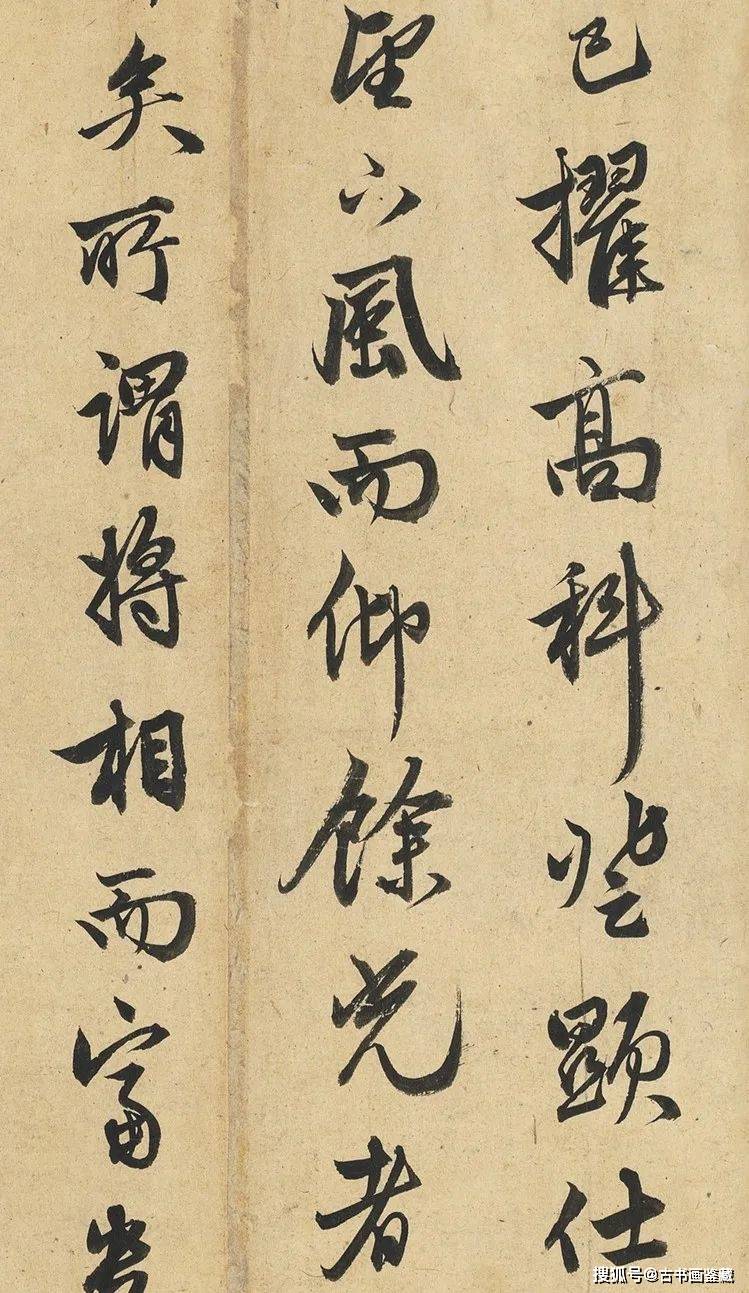 已擢高科登顯仕
望下風而仰餘光者
矣所謂將相而富貴
搜狐号@古书画鉴藏